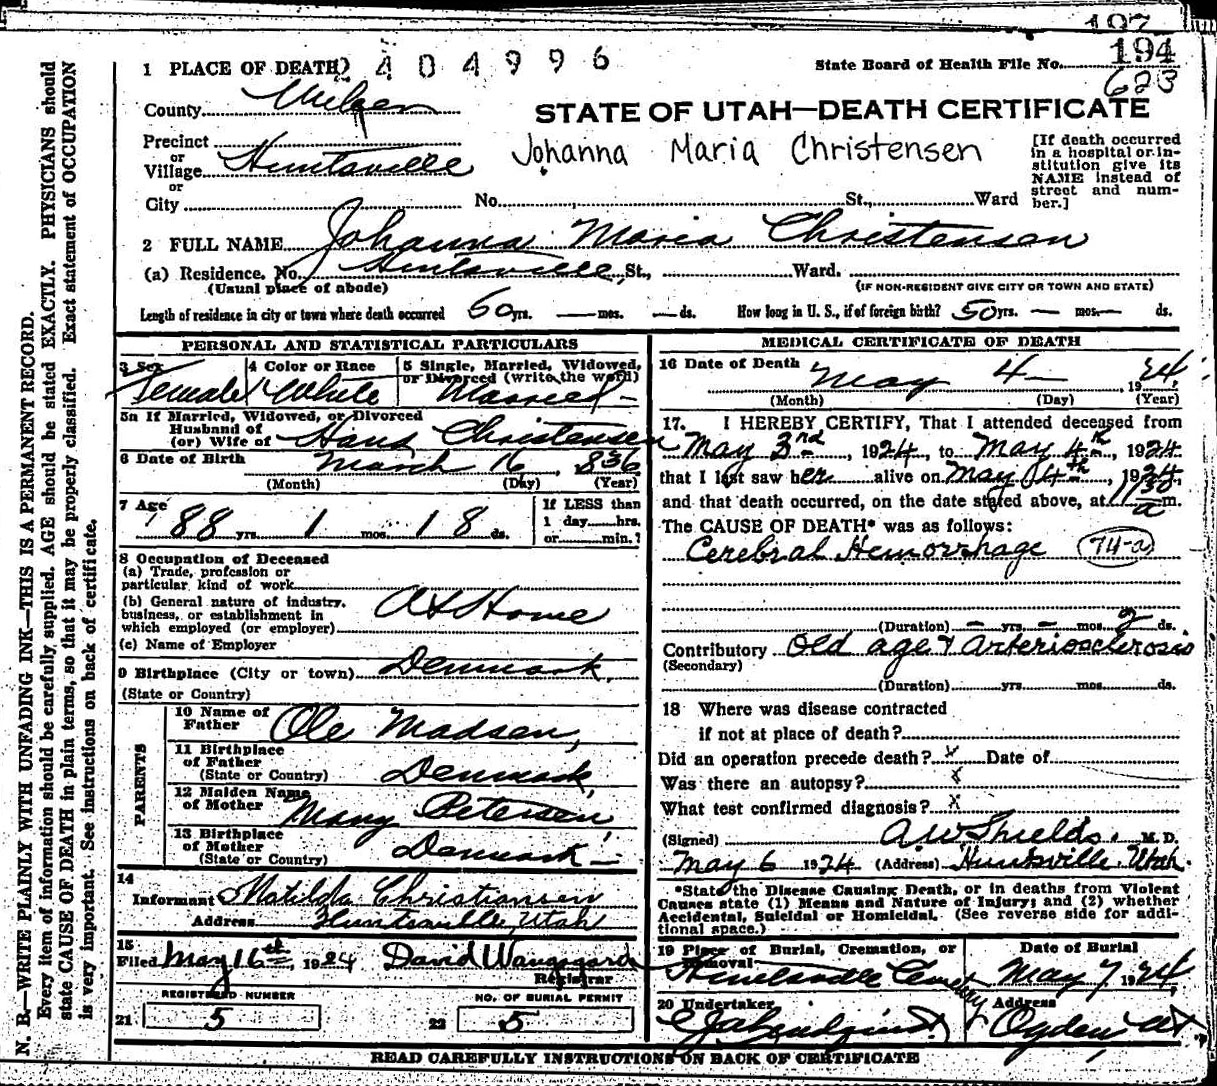 197
194
623
2 4 0 4 9 9 6
State Board of Health File No.
1 PLACE OF DEATH
County
STATE OF UTAH—DEATH CERTIFICATE
Precinct
or
Village Huntsville
or
City No. St., Ward
Johanna Maria Christensen
[If death occurred
in a hospital or in-
stitution give its
NAME instead of
street and num-
ber.]
2 FULL NAME Johanna Maria Christensen
(a) Residence. No. Huntsville St., Ward.
(Usual place of abode) (IF NON-RESIDENT GIVE CITY OR TOWN AND STATE)
Length of residence in city or town where death occurred 50 yrs. — mos. — ds. How long in U. S., if of foreign birth? 50 yrs. — mos. — ds.
PERSONAL AND STATISTICAL PARTICULARS
3 Sex Female
4 Color or Race White
5 Single, Married, Widowed,
or Divorced (write the word)
Married
5a If Married, Widowed, or Divorced
Husband of
(or) Wife of Hans Christensen
6 Date of Birth March 16, 836
(Month) (Day) (Year)
7 Age 88 yrs. 1 mos. 18 ds.
If LESS than
1 day hrs.
or min.?
8 Occupation of Deceased
(a) Trade, profession or
particular kind of work
(b) General nature of industry,
business, or establishment in
which employed (or employer) At Home
(c) Name of Employer
9 Birthplace (City or town) Denmark.
(State or Country)
PARENTS
10 Name of
Father Ole Madsen,
11 Birthplace
of Father
(State or Country) Denmark,
12 Maiden Name
of Mother Mary Petersen,
13 Birthplace
of Mother
(State or Country) Denmark—
14
Informant Matilda Christiansen
Address Huntsville, Utah
15
Filed May 16th, 1924 David Wangsgard
Registrar
REGISTERED NUMBER
21 5
NO. OF BURIAL PERMIT
22 5
MEDICAL CERTIFICATE OF DEATH
16 Date of Death May 4— 1924,
(Month) (Day) (Year)
17. I HEREBY CERTIFY, That I attended deceased from
May 3rd, 1924, to May 4th, 1924
that I last saw her alive on May 4th, 1924,
and that death occurred, on the date stated above, at 1130 a m.
The CAUSE OF DEATH* was as follows:
Cerebral Hemorrhage 74-a
(Duration) — yrs — mos 2 ds.
Contributory Old age & Arteriosclerosis
(Secondary)
(Duration) yrs mos ds.
18 Where was disease contracted
if not at place of death?
Did an operation precede death? x Date of
Was there an autopsy? x
What test confirmed diagnosis? x
(Signed) A.W. Shields. M. D.
May 6 1924 (Address) Huntsville, Utah.
*State the Disease Causing Death, or in deaths from Violent
Causes state (1) Means and Nature of Injury; and (2) whether
Accidental, Suicidal or Homicidal. (See reverse side for addi-
tional space.)
19 Place of Burial, Cremation, or
Removal
Huntsville Cemetery
Date of Burial
May 7 1924,
20 Undertaker
Address
Ogden, Ut
READ CAREFULLY INSTRUCTIONS ON BACK OF CERTIFICATE
N. B.—WRITE PLAINLY WITH UNFADING INK—THIS IS A PERMANENT RECORD.
Every item of information should be carefully supplied. AGE should be stated EXACTLY. PHYSICIANS should
state CAUSE OF DEATH in plain terms, so that it may be properly classified. Exact statement of OCCUPATION
is very important. See instructions on back of certificate.